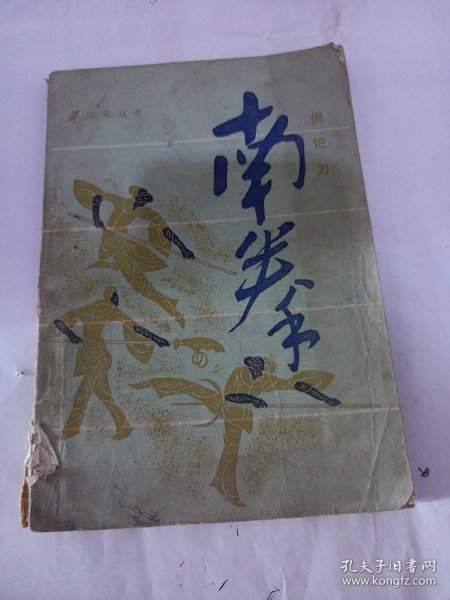 南拳丛书
南拳
棍钯刀
孔夫子旧书网
www.kongfz.com